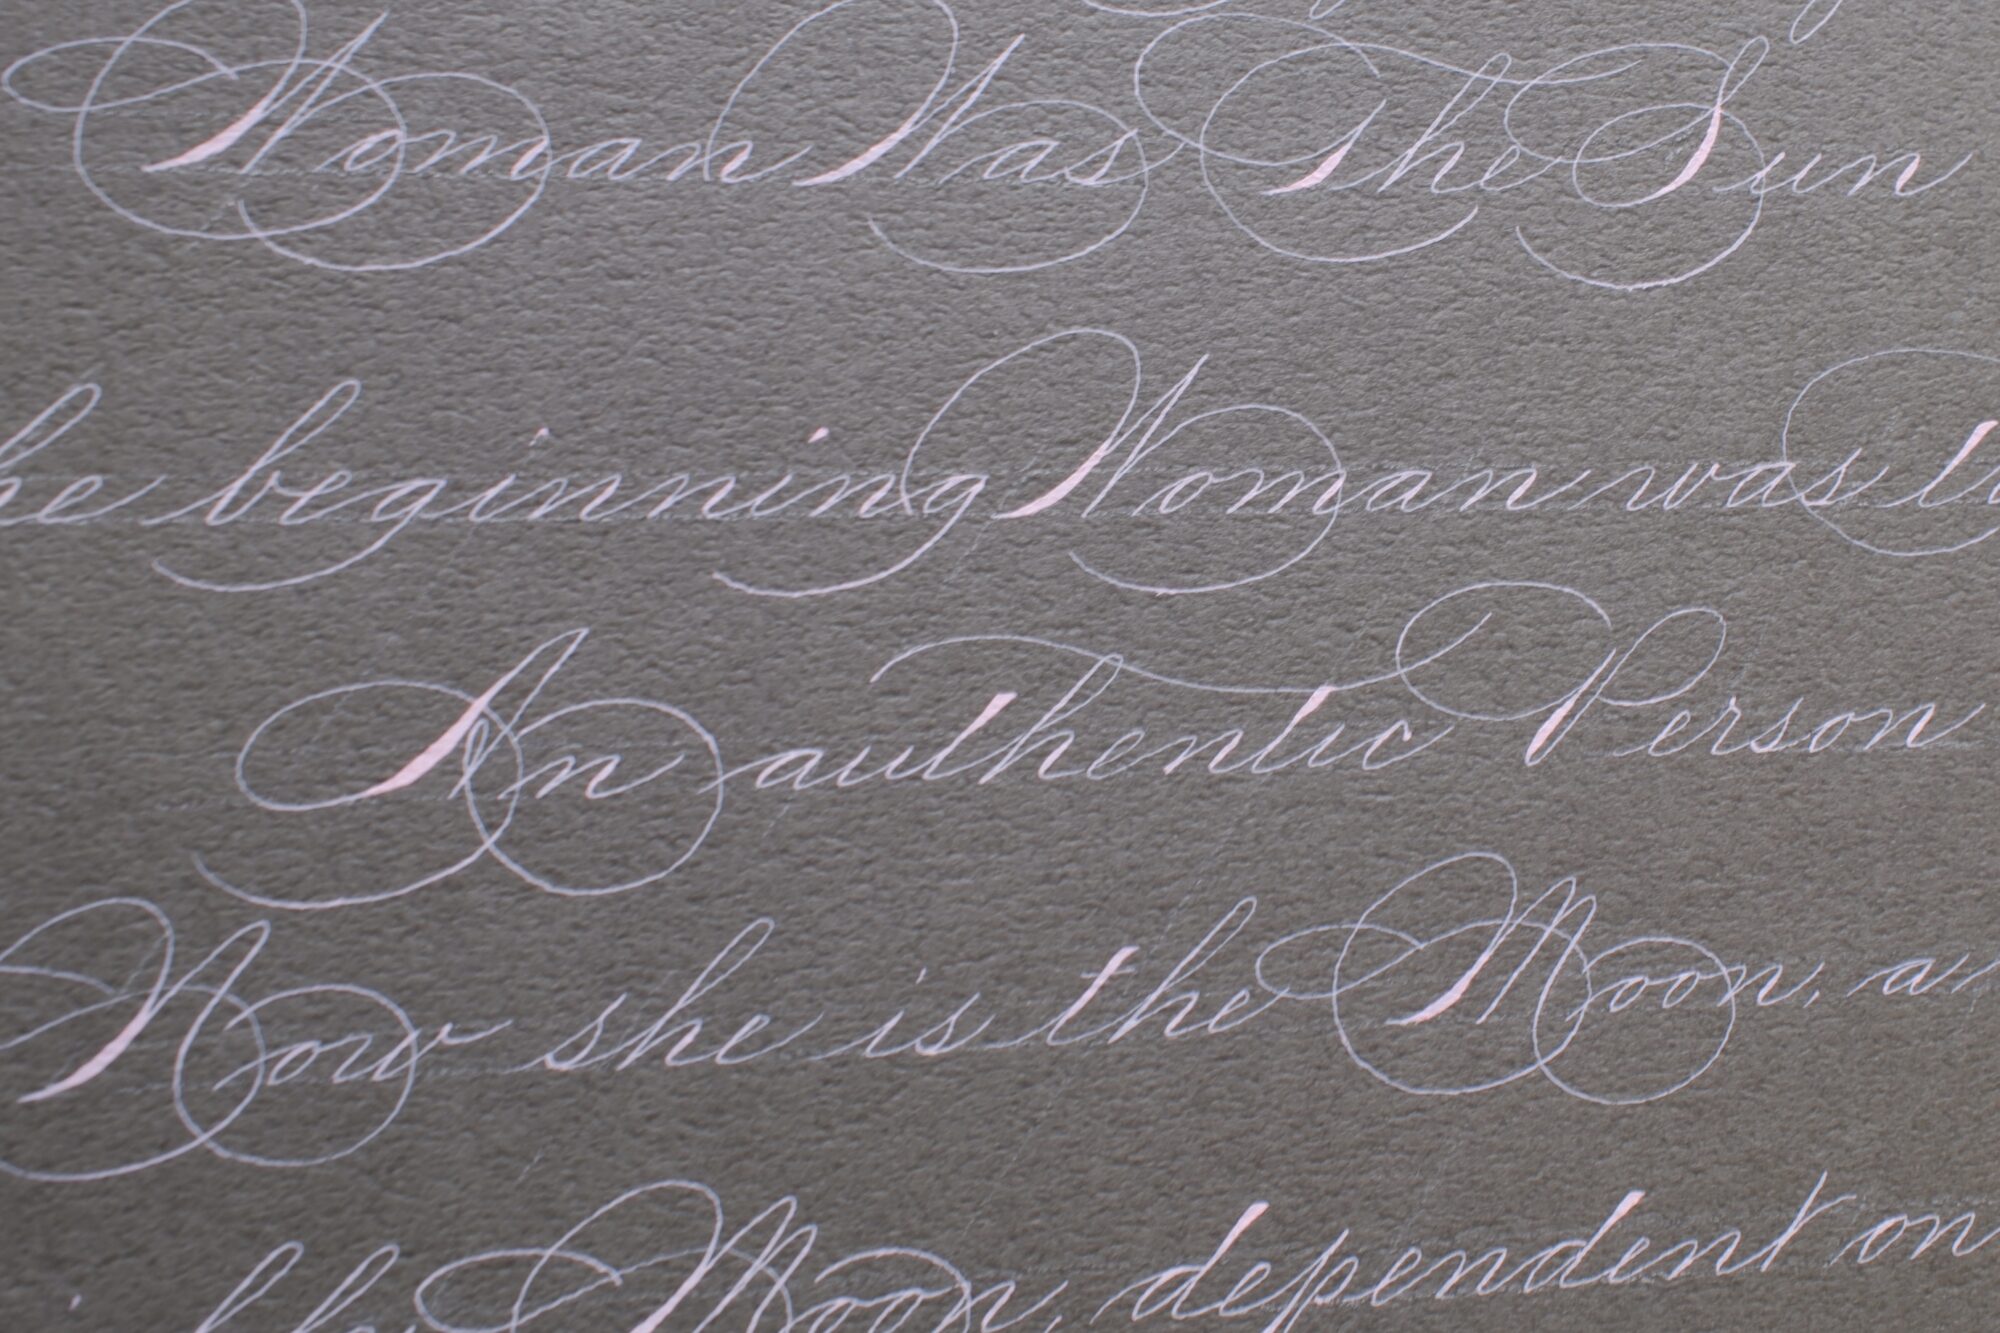 Woman Was The Sun
he beginning Woman was tr
An authentic Person
Now she is the Moon, a
Moon, dependent on